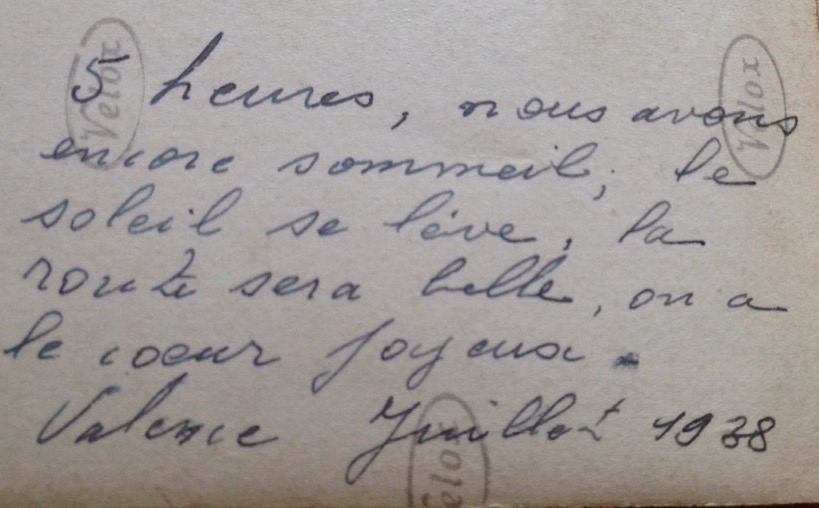 5 heures, nous avons
encore sommeil, le
soleil se lève, la
route sera belle, on a
le coeur joyeux.
Valence Juillet 1938
Velox
Velox
Velox